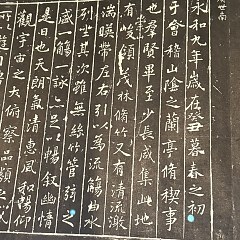 世南
永和九年歲在癸丑暮春之初
于會稽山陰之蘭亭脩稧事
也羣賢畢至少長咸集此地
有峻領茂林脩竹又有清流激
湍暎帶左右引以為流觴曲水
列坐其次雖無絲竹管弦之
盛一觴一詠亦足以暢叙幽情
是日也天朗氣清惠風和暢仰
觀宇宙之大俯察品類之